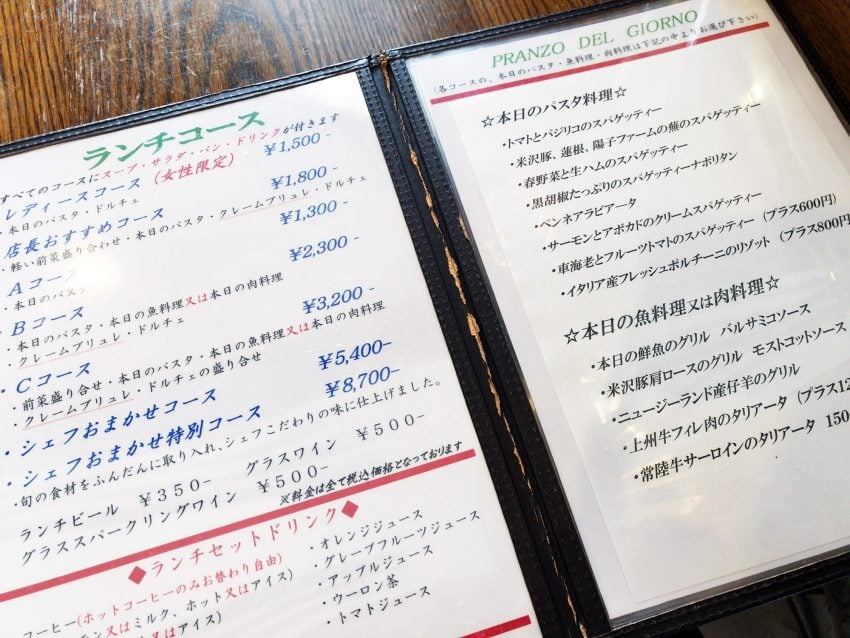 ランチコース
すべてのコースにスープ・サラダ・パン・ドリンクが付きます
・レディースコース (女性限定) ￥1,500-
・本日のパスタ・ドルチェ
・店長おすすめコース ￥1,800-
・軽い前菜盛り合わせ・本日のパスタ・クレームブリュレ・ドルチェ
・Aコース ￥1,300-
・本日のパスタ
・Bコース ￥2,300-
・本日のパスタ・本日の魚料理又は本日の肉料理
・クレームブリュレ・ドルチェ
・Cコース ￥3,200-
・前菜盛り合せ・本日のパスタ・本日の魚料理又は本日の肉料理
・クレームブリュレ・ドルチェの盛り合せ
・シェフおまかせコース ￥5,400-
・シェフおまかせ特別コース ￥8,700-
・旬の食材をふんだんに取り入れ、シェフこだわりの味に仕上げました。
ランチビール ￥350- グラスワイン ￥500-
グラススパークリングワイン ￥500-
※料金は全て税込価格となっております
◆ランチセットドリンク◆
コーヒー(ホットコーヒーのみお替わり自由)
又はミルク、ホット又はアイス)
又はアイス)
・オレンジジュース
・グレープフルーツジュース
・アップルジュース
・ウーロン茶
・トマトジュース
PRANZO DEL GIORNO
(各コースの、本日のパスタ・魚料理・肉料理は下記の中よりお選び下さい)
☆本日のパスタ料理☆
・トマトとバジリコのスパゲッティー
・米沢豚、蓮根、陽子ファームの蕪のスパゲッティー
・春野菜と生ハムのスパゲッティー
・黒胡椒たっぷりのスパゲッティーナポリタン
・ペンネアラビアータ
・サーモンとアボカドのクリームスパゲッティー
・車海老とフルーツトマトのスパゲッティー (プラス600円)
・イタリア産フレッシュポルチーニのリゾット (プラス800円
☆本日の魚料理又は肉料理☆
・本日の鮮魚のグリル バルサミコソース
・米沢豚肩ロースのグリル モストコットソース
・ニュージーランド産仔羊のグリル
・上州牛フィレ肉のタリアータ (プラス12
・常陸牛サーロインのタリアータ 150